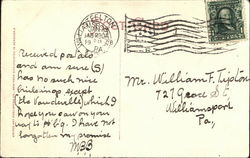 PHILADELPHIA
PA.
received postals
and am sure (S)
has no such nice
buildings except
(the Vanderbilts) which I
hope you saw on your
way to Pbg. I have not
forgotten my promise
Mr. William F. Tipton
727 Grace St
Williamsport
Pa,